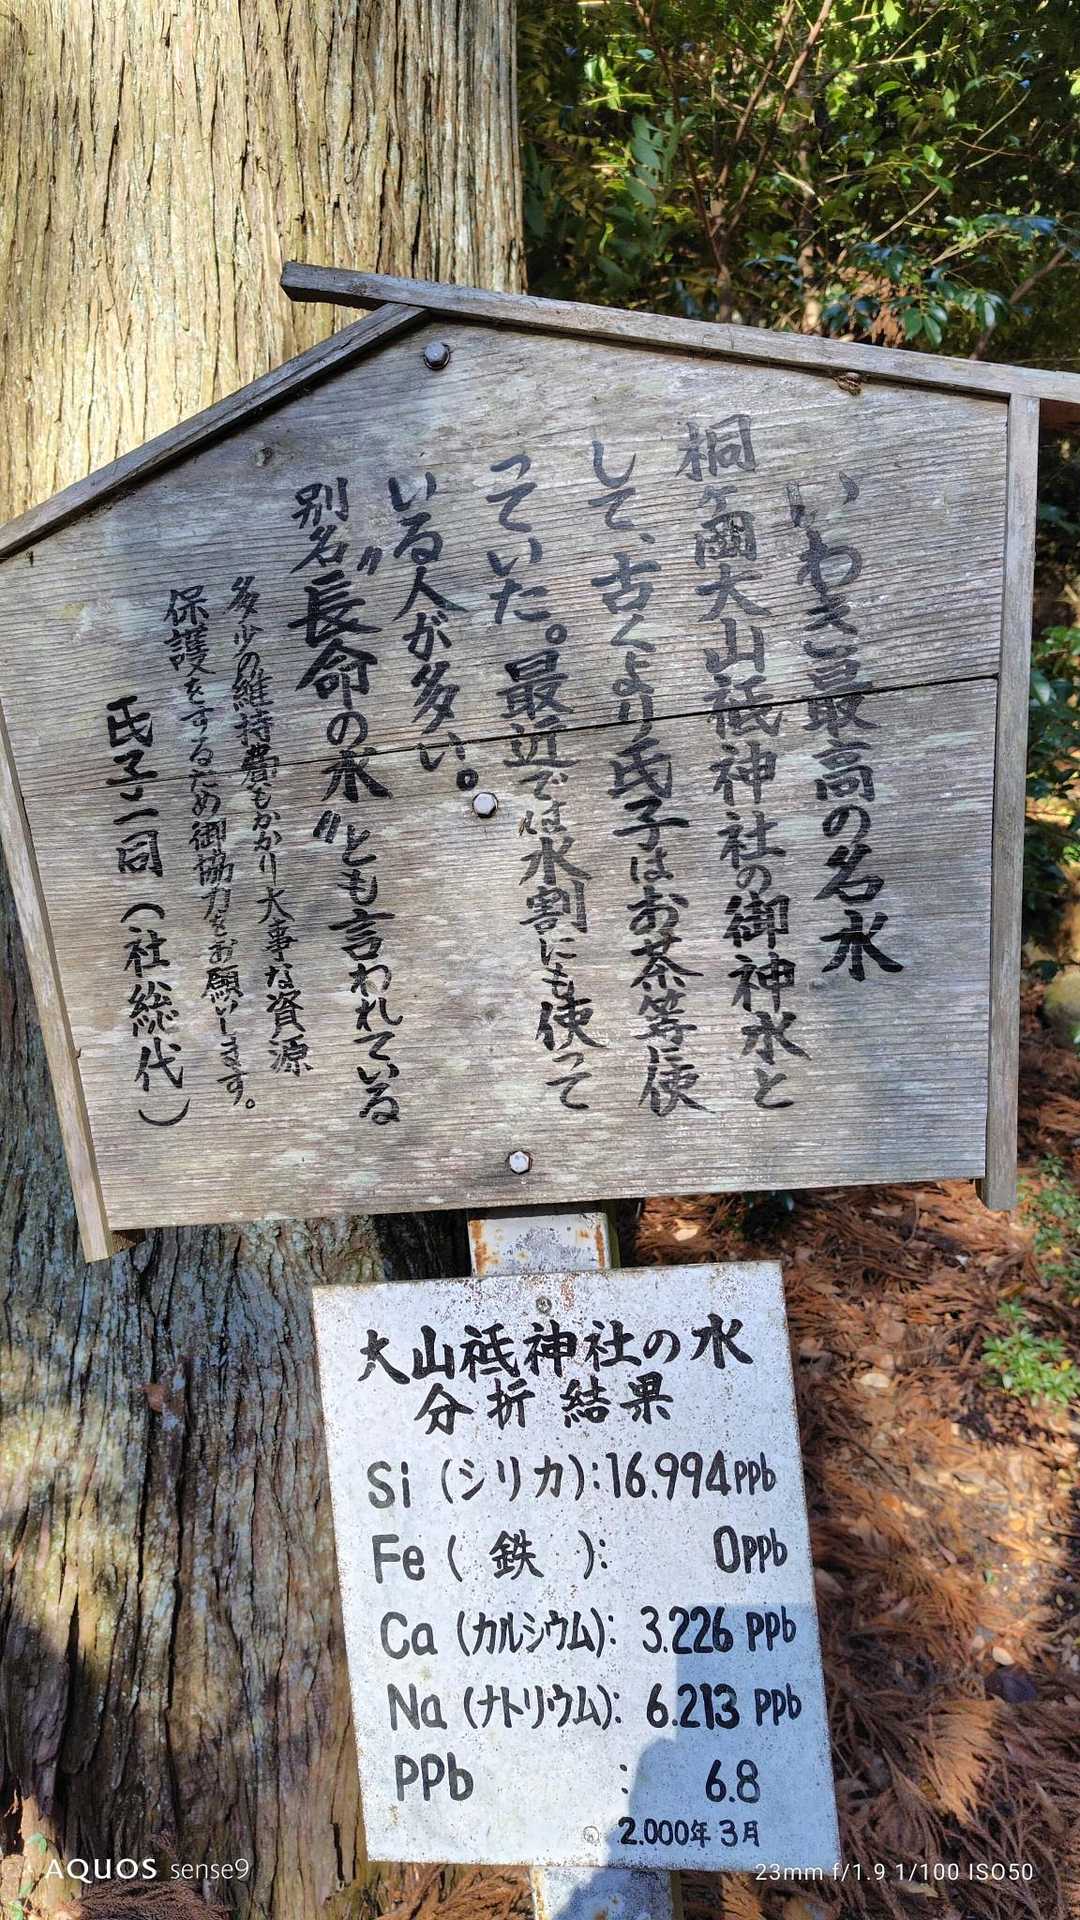 いわき最高の名水
桐ヶ岡大山祗神社の御神水と
して、古くより氏子はお茶等に使
っていた。最近では水割にも使って
いる人が多い。
別名〝長命の水〟とも言われている
多少の維持費もかかり大事な資源
保護をするため御協力をお願いします。
氏子一同(社総代)
大山祗神社の水
分折結果
Si(シリカ):16.994PPb
Fe(鉄):0PPb
Ca(カルシウム):3.226PPb
Na(ナトリウム):6.213PPb
PPb:6.8
2.000年3月
AQUOS sense9
23mm f/1.9 1/100 ISO50